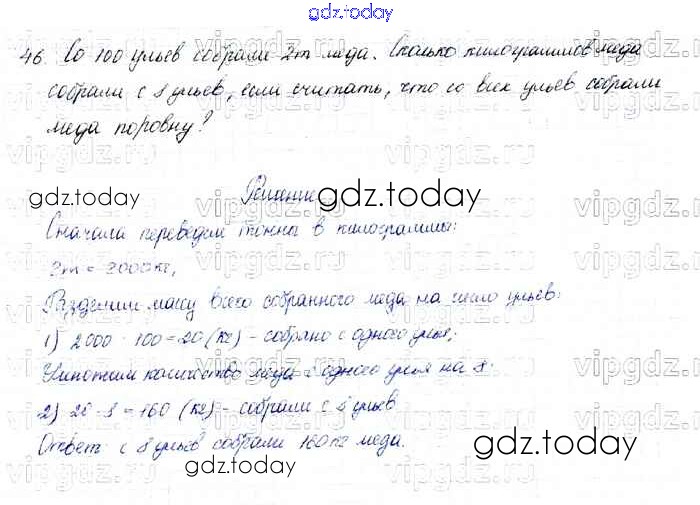 gdz.today
46. Со 100 ульев собрали 2т меда. Сколько килограммов меда
собрали с 8 ульев, если считать, что со всех ульев собрали
меда поровну?
gdz.today
Решение
gdz.today
Сначала переведем тонны в килограммы:
2т = 2000кг,
Разделим массу всего собранного меда на число ульев:
1) 2000 : 100 = 20 (кг) - собрано с одного улья;
Умножим количество меда с одного улья на 8:
2) 20 · 8 = 160 (кг) - собрали с 8 ульев
Ответ: с 8 ульев собрали 160 кг меда.
gdz.today
gdz.today
vipgdz.ru
vipgdz.ru
vipgdz.ru